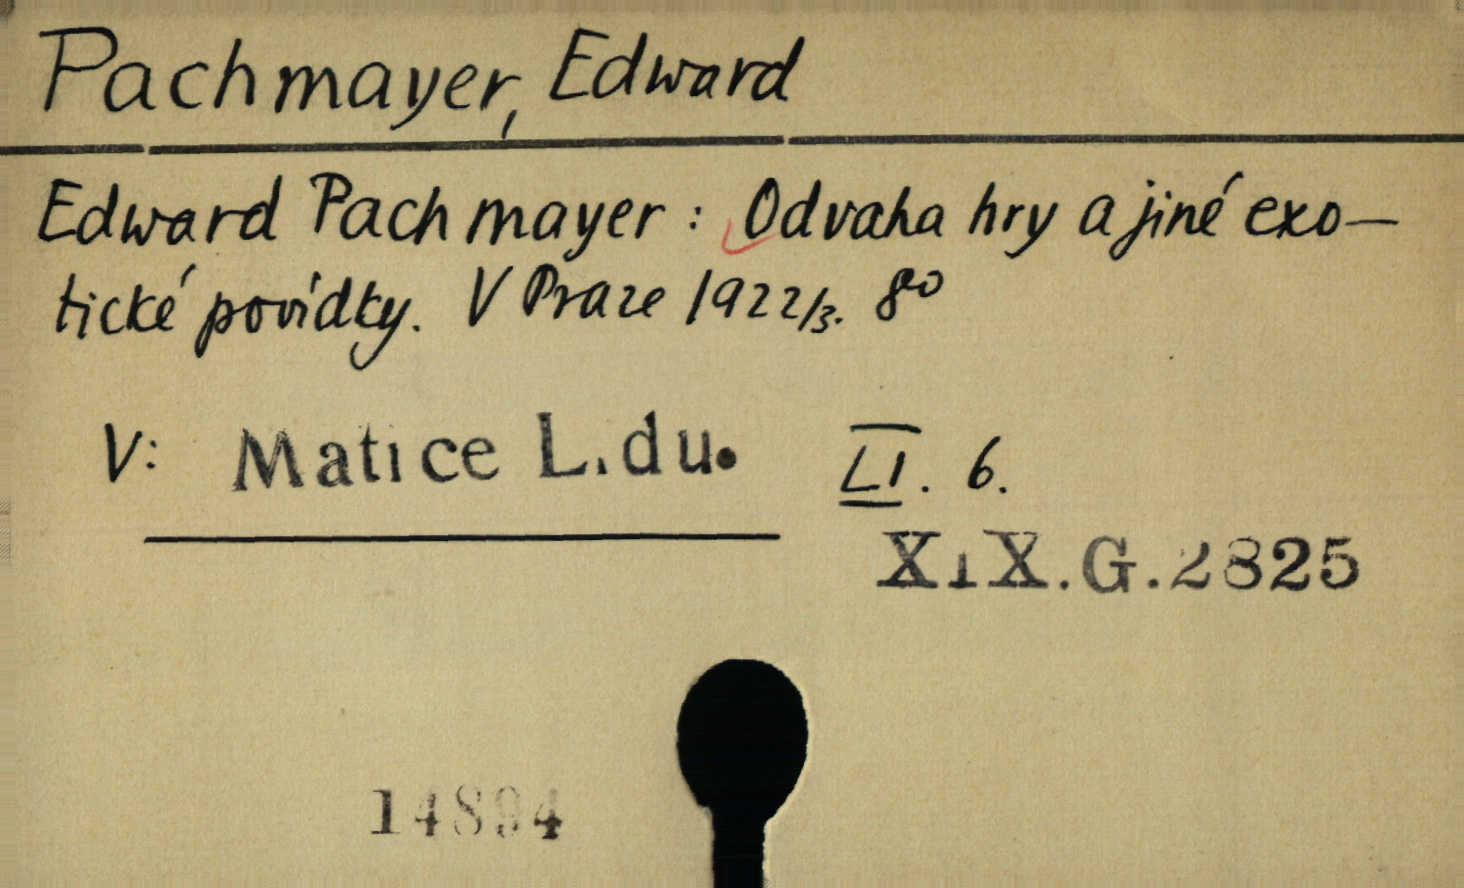 Pachmayer, Edward
Edward Pachmayer: Odvaha hry a jiné exo-
tické povídky. V Praze 1922/3. 8º
V: Matice L.du. LI. 6.
XIX.G.2825
14894